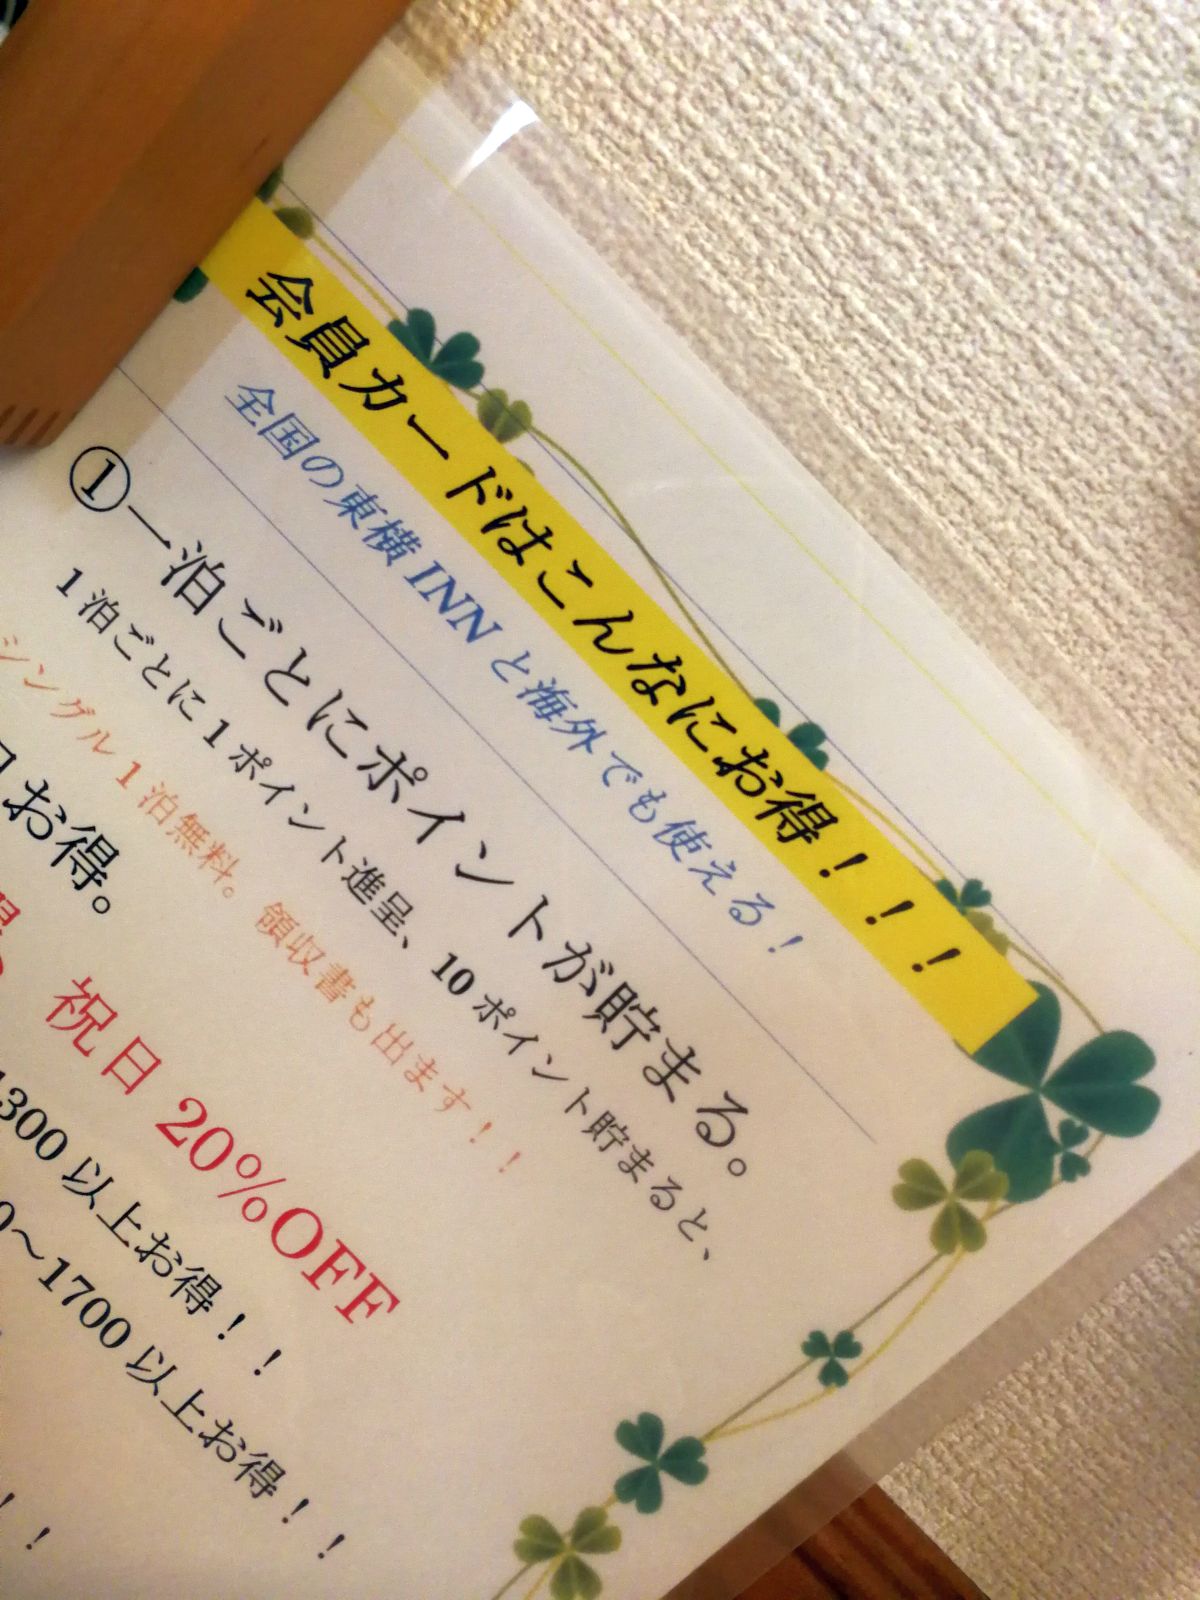 会員カードはこんなにお得!!!
全国の東横INNと海外でも使える!
①一泊ごとにポイントが貯まる。
1泊ごとに1ポイント進呈、10ポイント貯まると、
シングル1泊無料。領収書も出ます!!
お得。
祝日20%OFF
300以上お得!!
0～1700以上お得!!
!!